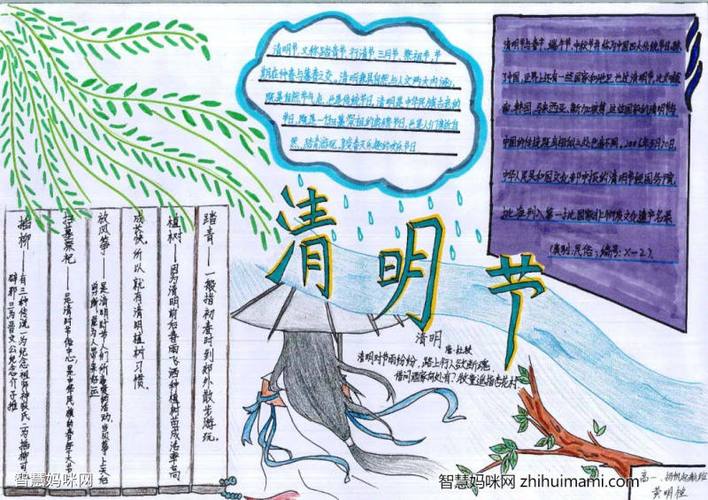 清明节，又称踏青节、行清节、三月节、祭祖节，节
期在仲春与暮春之交。清明兼具自然与人文两大内涵，
既是自然节气点，也是传统节日，清明是中华民族古老的
节日，既是一扫墓祭祖的肃穆节日，也是人们亲近自
然、踏青游玩、享受春天乐趣的欢乐节日
清明节与春节、端午节、中秋节并称为中国四大传统节日。除
了中国，世界上还有一些国家和地区也过清明节，比如越
南、韩国、马来西亚、新加坡等，
2006年5月20日，
中华人民共和国文化部申报的清明节经国务院
批准列入第一批国家级非物质文化遗产名录。
(类别：民俗；编号：X-2)。
清明节
踏青——一般指初春时到郊外散步游玩。
植树——因为清明前后春雨飞洒，种植树苗成活率高
成长快，所以就有清明植树习惯
放风筝——是清明时节人们所喜爱的活动，
扫墓祭祀——是清明节俗中心，
插柳——有三种传说，一为纪念祖师神农氏；一为插柳可
辟邪；一为晋文公纪念介子推
清明
唐·杜牧
清明时节雨纷纷，路上行人欲断魂。
借问酒家何处有？牧童遥指杏花村。
高一、扬帆起航班
黄明桂
智慧妈咪网
智慧妈咪网 zhihuimami.com